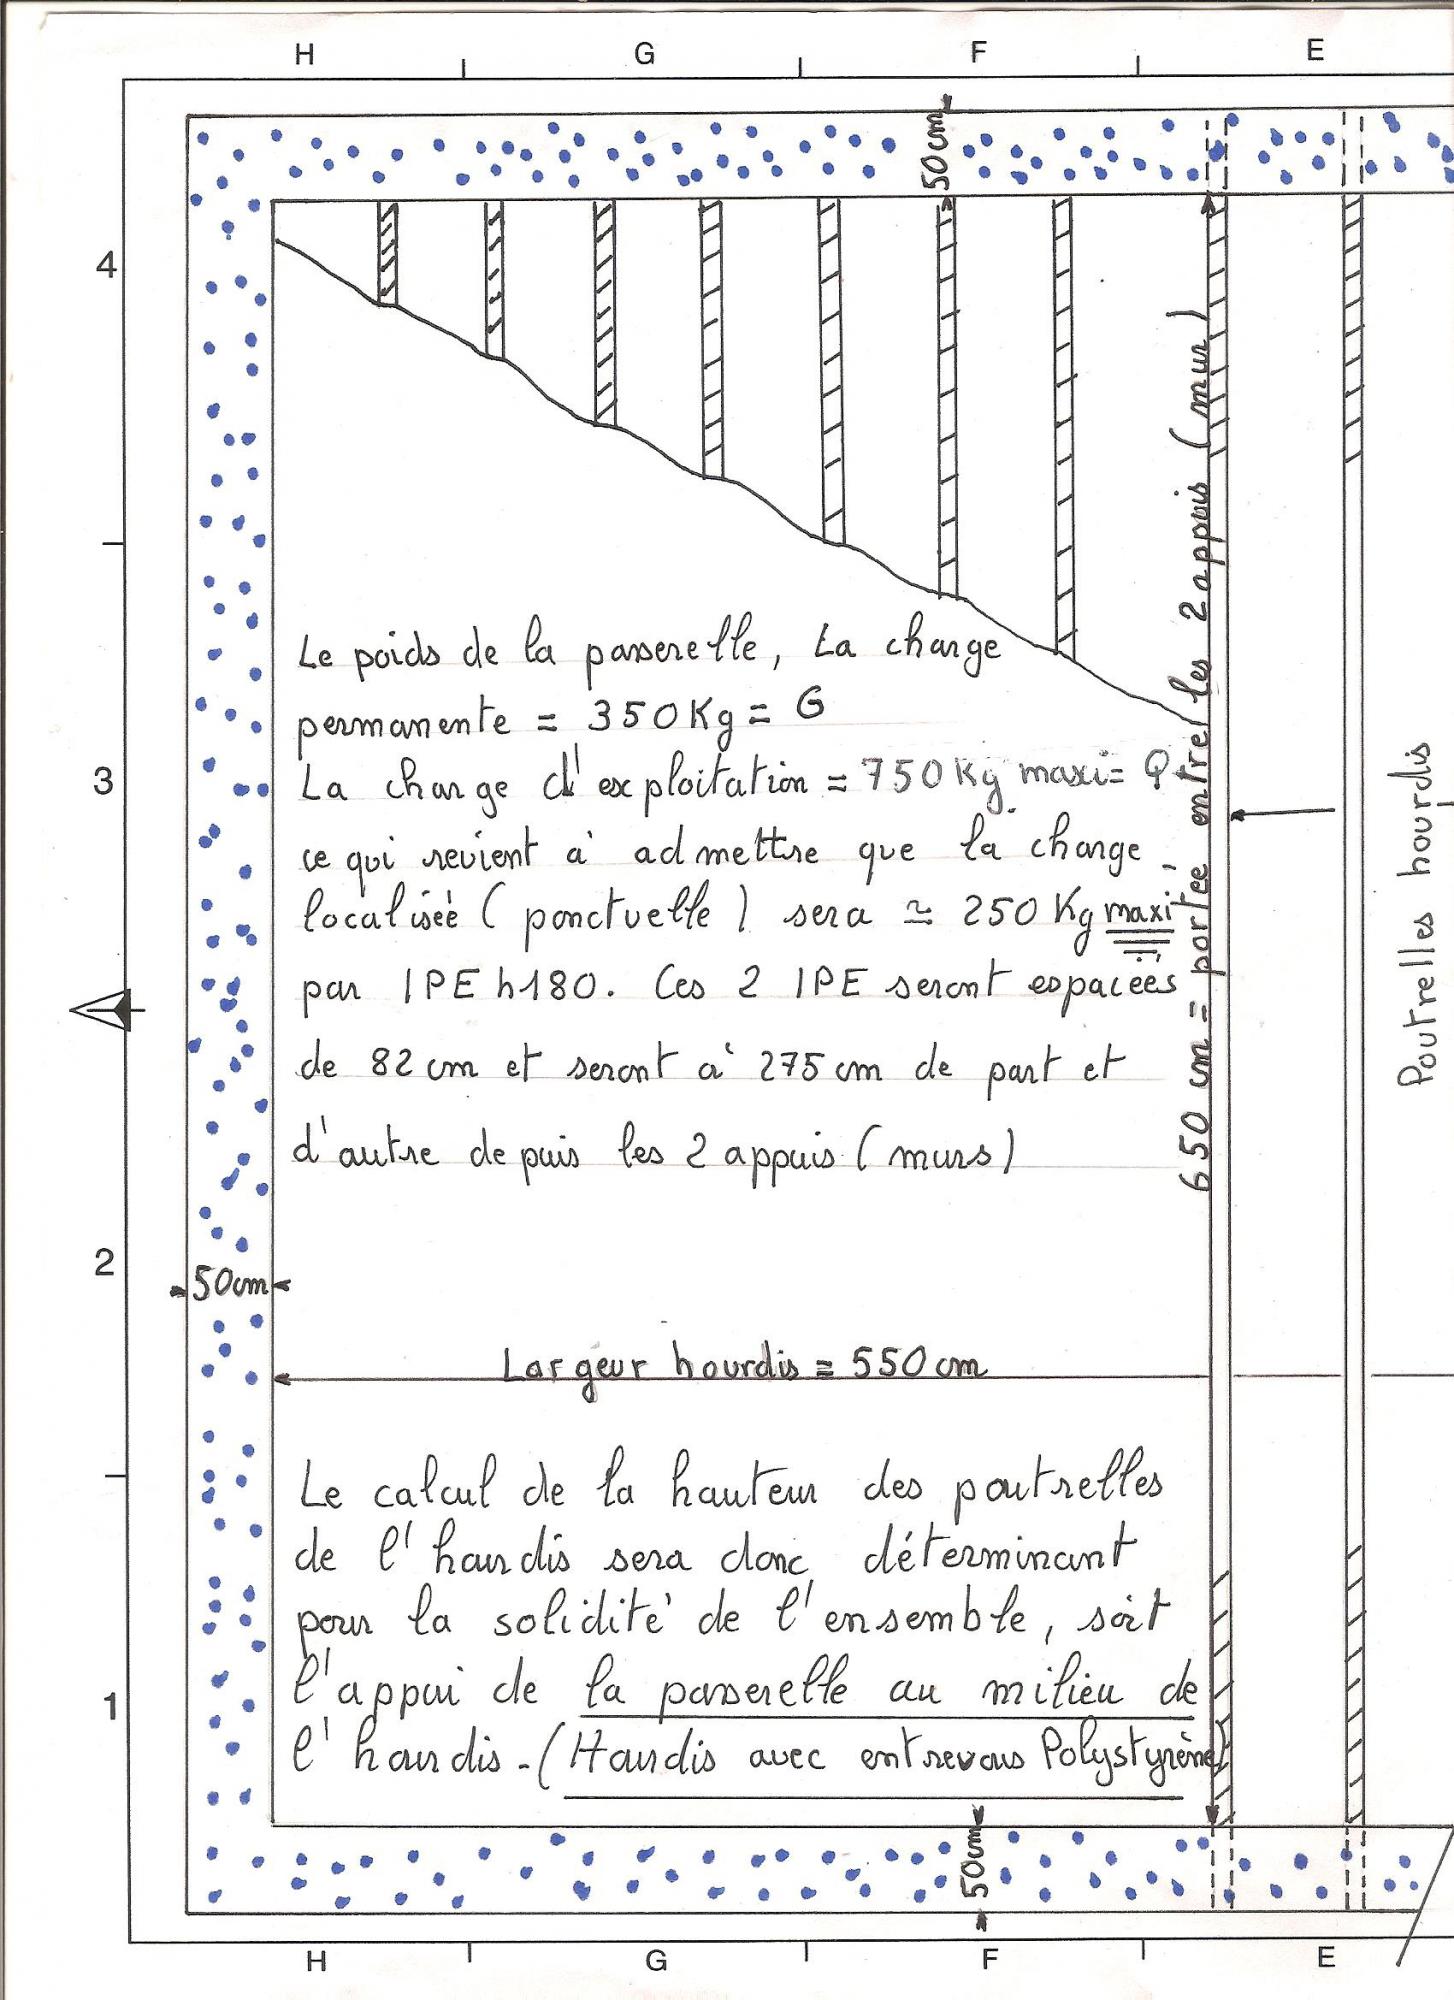 H G F E
50cm
4
Le poids de la passerelle, La charge
permanente = 350Kg = G
La charge d'exploitation = 750Kg maxi = Q
ce qui revient à admettre que la charge
localisée (ponctuelle) sera ≃ 250 Kg maxi
par IPE h180. Ces 2 IPE seront espacées
de 82 cm et seront à 275 cm de part et
d'autre depuis les 2 appuis (murs)
650 cm = portée entre les 2 appuis (mur)
Poutrelles hourdis
3
2
50cm
Largeur hourdis = 550 cm
Le calcul de la hauteur des poutrelles
de l'hourdis sera donc déterminant
pour la solidité de l'ensemble, soit
l'appui de la passerelle au milieu de
l'hourdis - (Hourdis avec entrevous Polystyrène)
1
50cm
H G F E